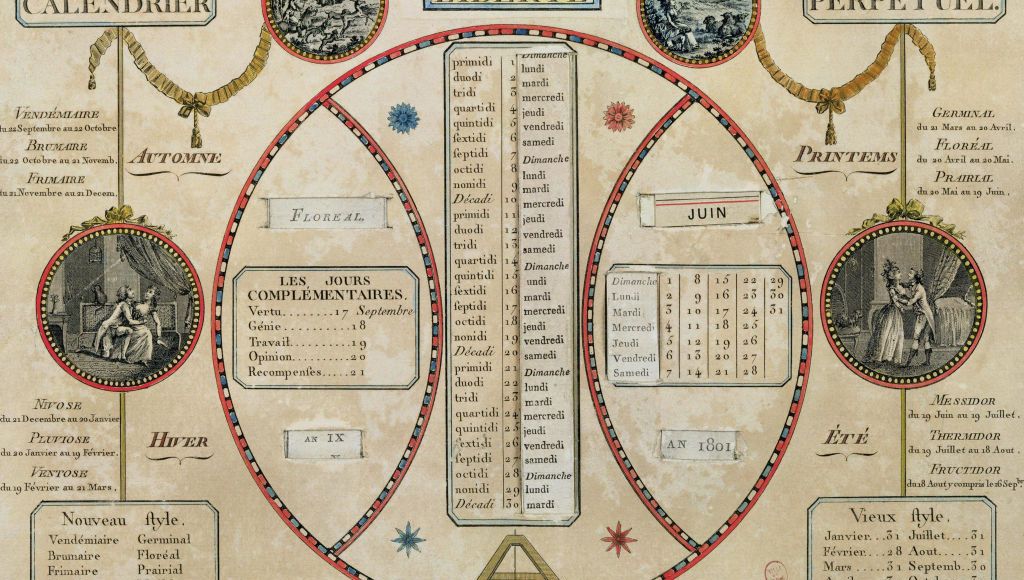 CALENDRIER
LIBERTÉ
PERPETUEL.
VENDÉMIAIRE
du 22 Septembre au 22 Octobre
BRUMAIRE
du 22 Octobre au 21 Novemb.
FRIMAIRE
du 21 Novembre au 21 Decem.
AUTOMNE
NIVOSE
du 21 Decembre au 20 Janvier
PLUVIOSE
du 20 Janvier au 19 Février.
VENTOSE
du 19 Février au 21 Mars.
HIVER
Nouveau ſtyle.
Vendémiaire Germinal
Brumaire Floréal
Frimaire Prairial
FLOREAL.
LES JOURS
COMPLÉMENTAIRES.
Vertu........17 Septembre
Génie...........18
Travail..........19
Opinion..........20
Recompenſes.....21
AN IX
Dimanche
primidi 1 lundi
duodi 2 mardi
tridi 3 mercredi
quartidi 4 jeudi
quintidi 5 vendredi
ſextidi 6 samedi
ſeptidi 7 Dimanche
octidi 8 lundi
nonidi 9 mardi
Décadi 10 mercredi
primidi 11 jeudi
duodi 12 vendredi
tridi 13 samedi
quartidi 14 Dimanche
quintidi 15 undi
ſextidi 16 mardi
ſeptidi 17 mercredi
octidi 18 jeudi
nonidi 19 vendredi
Décadi 20 samedi
primidi 21 Dimanche
duodi 22 lundi
tridi 23 mardi
quartidi 24 mercredi
quintidi 25 jeudi
ſextidi 26 vendredi
ſeptidi 27 samedi
octidi 28 Dimanche
nonidi 29 lundi
Décadi 30 mardi
JUIN
Dimanche 1 8 15 22 29
Lundi 2 9 16 23 30
Mardi 3 10 17 24 31
Mercredi 4 11 18 25
Jeudi 5 12 19 26
Vendredi 6 13 20 27
Samedi 7 14 21 28
AN 1801
GERMINAL
du 21 Mars au 20 Avril.
FLORÉAL
du 20 Avril au 20 Mai.
PRAIRIAL
du 20 Mai au 19 Juin.
PRINTEMS
MESSIDOR
du 19 Juin au 19 Juillet.
THERMIDOR
du 19 Juillet au 18 Aout.
FRUCTIDOR
du 18 Aout y compris le 16 Sepbre
ÉTÉ
Vieux ſtyle.
Janvier...31 Juillet....31
Février...28 Aout.....31
Mars ....31 Septemb..30